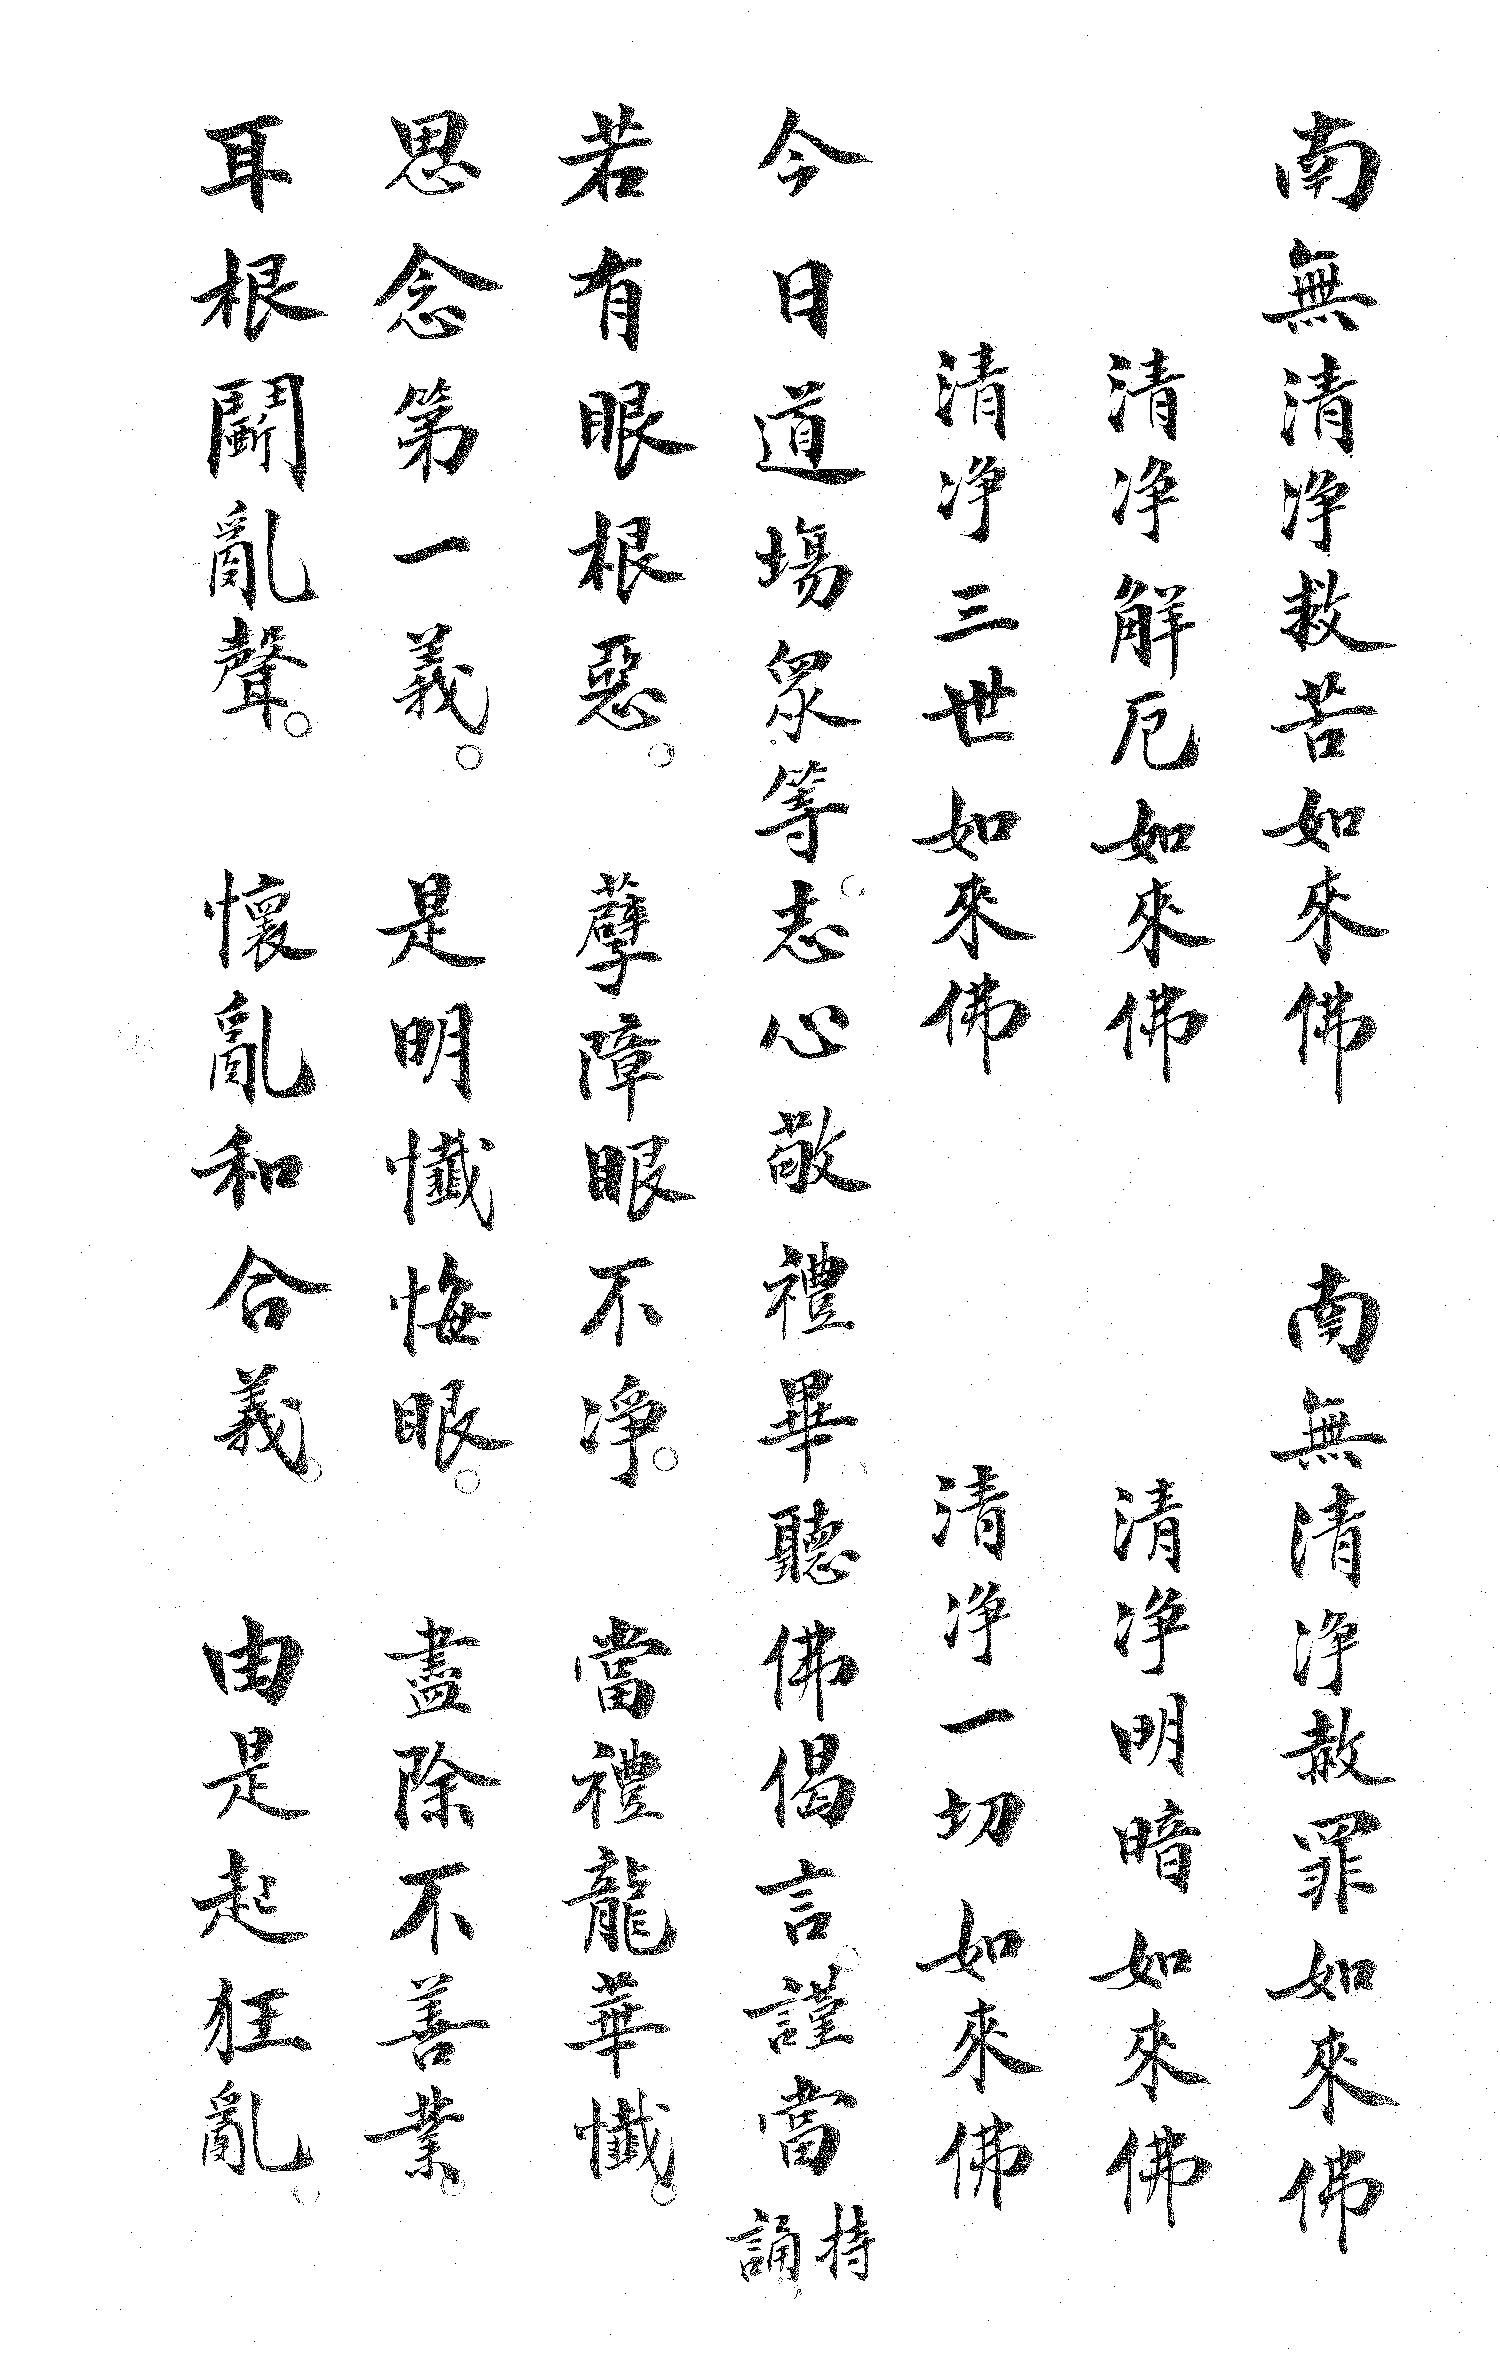 南無清淨救苦如來佛　南無清淨赦罪如來佛
清淨解厄如來佛　清淨明暗如來佛
清淨三世如來佛　清淨一切如來佛
今日道場眾等。志心敬禮畢。聽佛偈言。謹當持誦
若有眼根惡。　孽障眼不淨。　當禮龍華懺。
思念第一義。　是明懺悔眼。　盡除不善業。
耳根鬭亂聲。　懷亂和合義。　由是起狂亂。